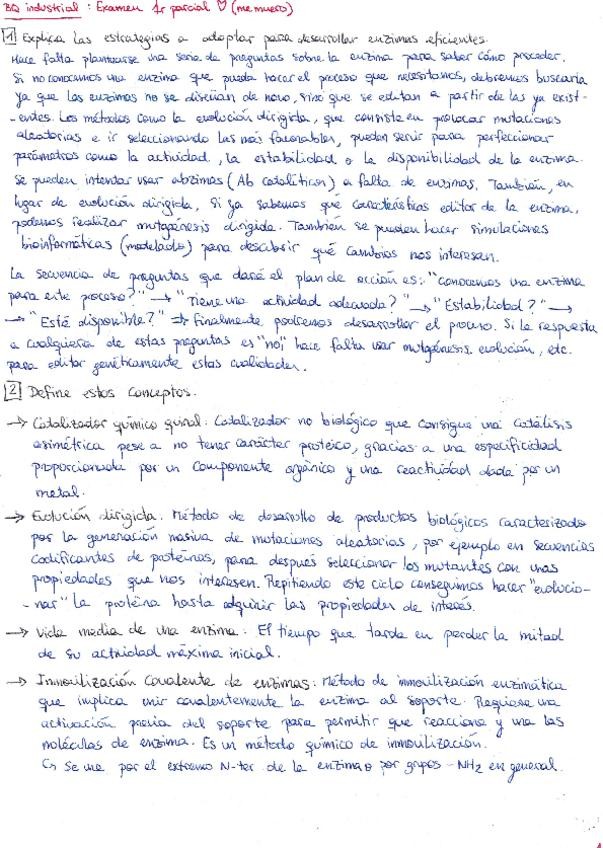 BQ industrial: Examen 1r parcial ♡ (me muero)
1 Explica las estrategias a adoptar para desarrollar enzimas eficientes.
Hace falta plantearse una serie de preguntas sobre la enzima para saber cómo proceder.
Si no conocemos una enzima que pueda hacer el proceso que necesitamos, deberemos buscarla
ya que las enzimas no se diseñan de novo, sino que se editan a partir de las ya exist-
-entes. Los métodos como la evolución dirigida, que consiste en provocar mutaciones
aleatorias e ir seleccionando las más favorables, pueden servir para perfeccionar
parámetros como la actividad, la estabilidad o la disponibilidad de la enzima.
Se pueden intentar usar abzimas (Ab catalíticos) a falta de enzimas. También, en
lugar de evolución dirigida, si ya sabemos qué características editar de la enzima,
podemos realizar mutagénesis dirigida. También se pueden hacer simulaciones
bioinformáticas (modelado) para descubrir qué cambios nos interesan.
La secuencia de preguntas que dará el plan de acción es: "conocemos una enzima
para este proceso?" → "Tiene una actividad adecuada?" → "Estabilidad?" →
→ "Está disponible?" ⇒ Finalmente podremos desarrollar el proceso. Si la respuesta
a cualquiera de estas preguntas es "no", hace falta usar mutagénesis, evolución, etc.
para editar genéticamente estas cualidades.
2 Define estos conceptos.
→ Catalizador químico quiral: Catalizador no biológico que consigue una catálisis
asimétrica pese a no tener carácter proteico, gracias a una especificidad
proporcionada por un componente orgánico y una reactividad dada por un
metal.
→ Evolución dirigida: Método de desarrollo de productos biológicos caracterizado
por la generación masiva de mutaciones aleatorias, por ejemplo en secuencias
codificantes de proteínas, para después seleccionar los mutantes con unas
propiedades que nos interesen. Repitiendo este ciclo conseguimos hacer "evolucio-
-nar" la proteína hasta adquirir las propiedades de interés.
→ Vida media de una enzima: El tiempo que tarda en perder la mitad
de su actividad máxima inicial.
→ Inmovilización covalente de enzimas: Método de inmovilización enzimática
que implica unir covalentemente la enzima al soporte. Requiere una
activación previa del soporte para permitir que reaccione y una las
moléculas de enzima. Es un método químico de inmovilización.
↳ Se une por el extremo N-ter de la enzima o por grupos -NH2 en general.